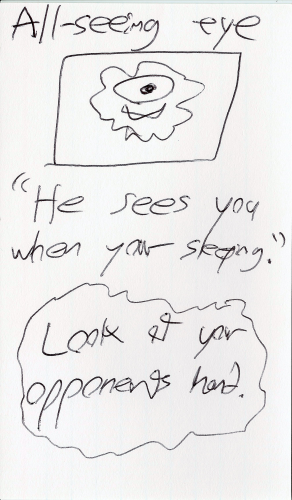 All-seeing eye
"He sees you
when your sleeping."
Look at your
opponents hand.